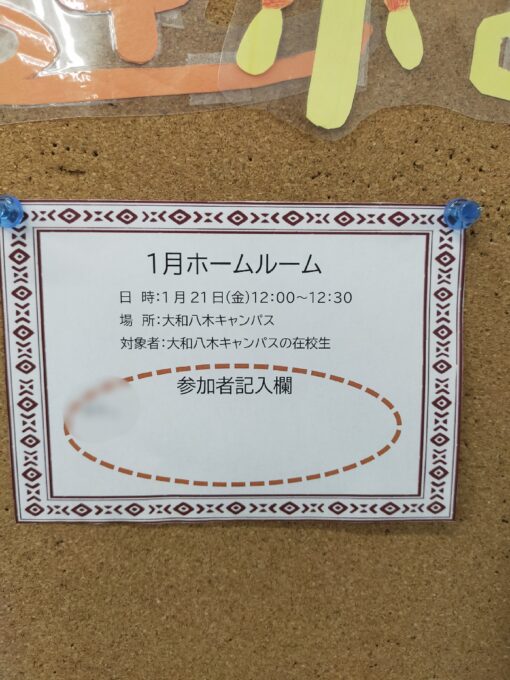 1月ホームルーム
日 時:1月21日(金)12:00~12:30
場 所:大和八木キャンパス
対象者:大和八木キャンパスの在校生
参加者記入欄